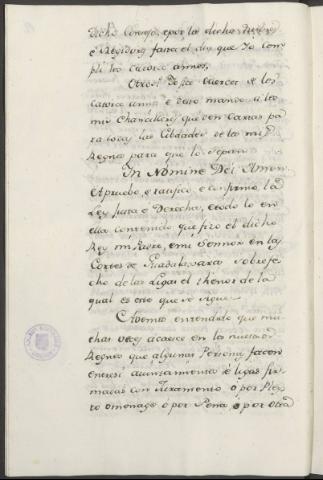 dicho Consejo, e por los dichos Tutores
e Regidores fasta el dia que Yo com-
pli los catorce annos.
Otrosi desde
catorce annos e dare mando a los
mis Chancilleres que den Cartas pa-
ra todas las Cibdades de los mis
Regnos para que lo sepan.
In Nómine Dei Amen
Apruebo, e ratifico e confirmo la
Ley fecha e Derecho, e todo lo en
ella contenido que fizo el dicho
Rey mi Padre, e mi Sennor en las
Cortes de Guadalaxara sobre fe-
cho de las Ligas el thenor de la
qual es este que se sigue.
Abemos entendido que mu-
chas veces acaesce en los nuestros
Regnos que algunas Personas facen
entresi ayuntamientos e ligas fir-
madas con Juramento, ó por Pley-
to omenage ó por Pena ó por otra